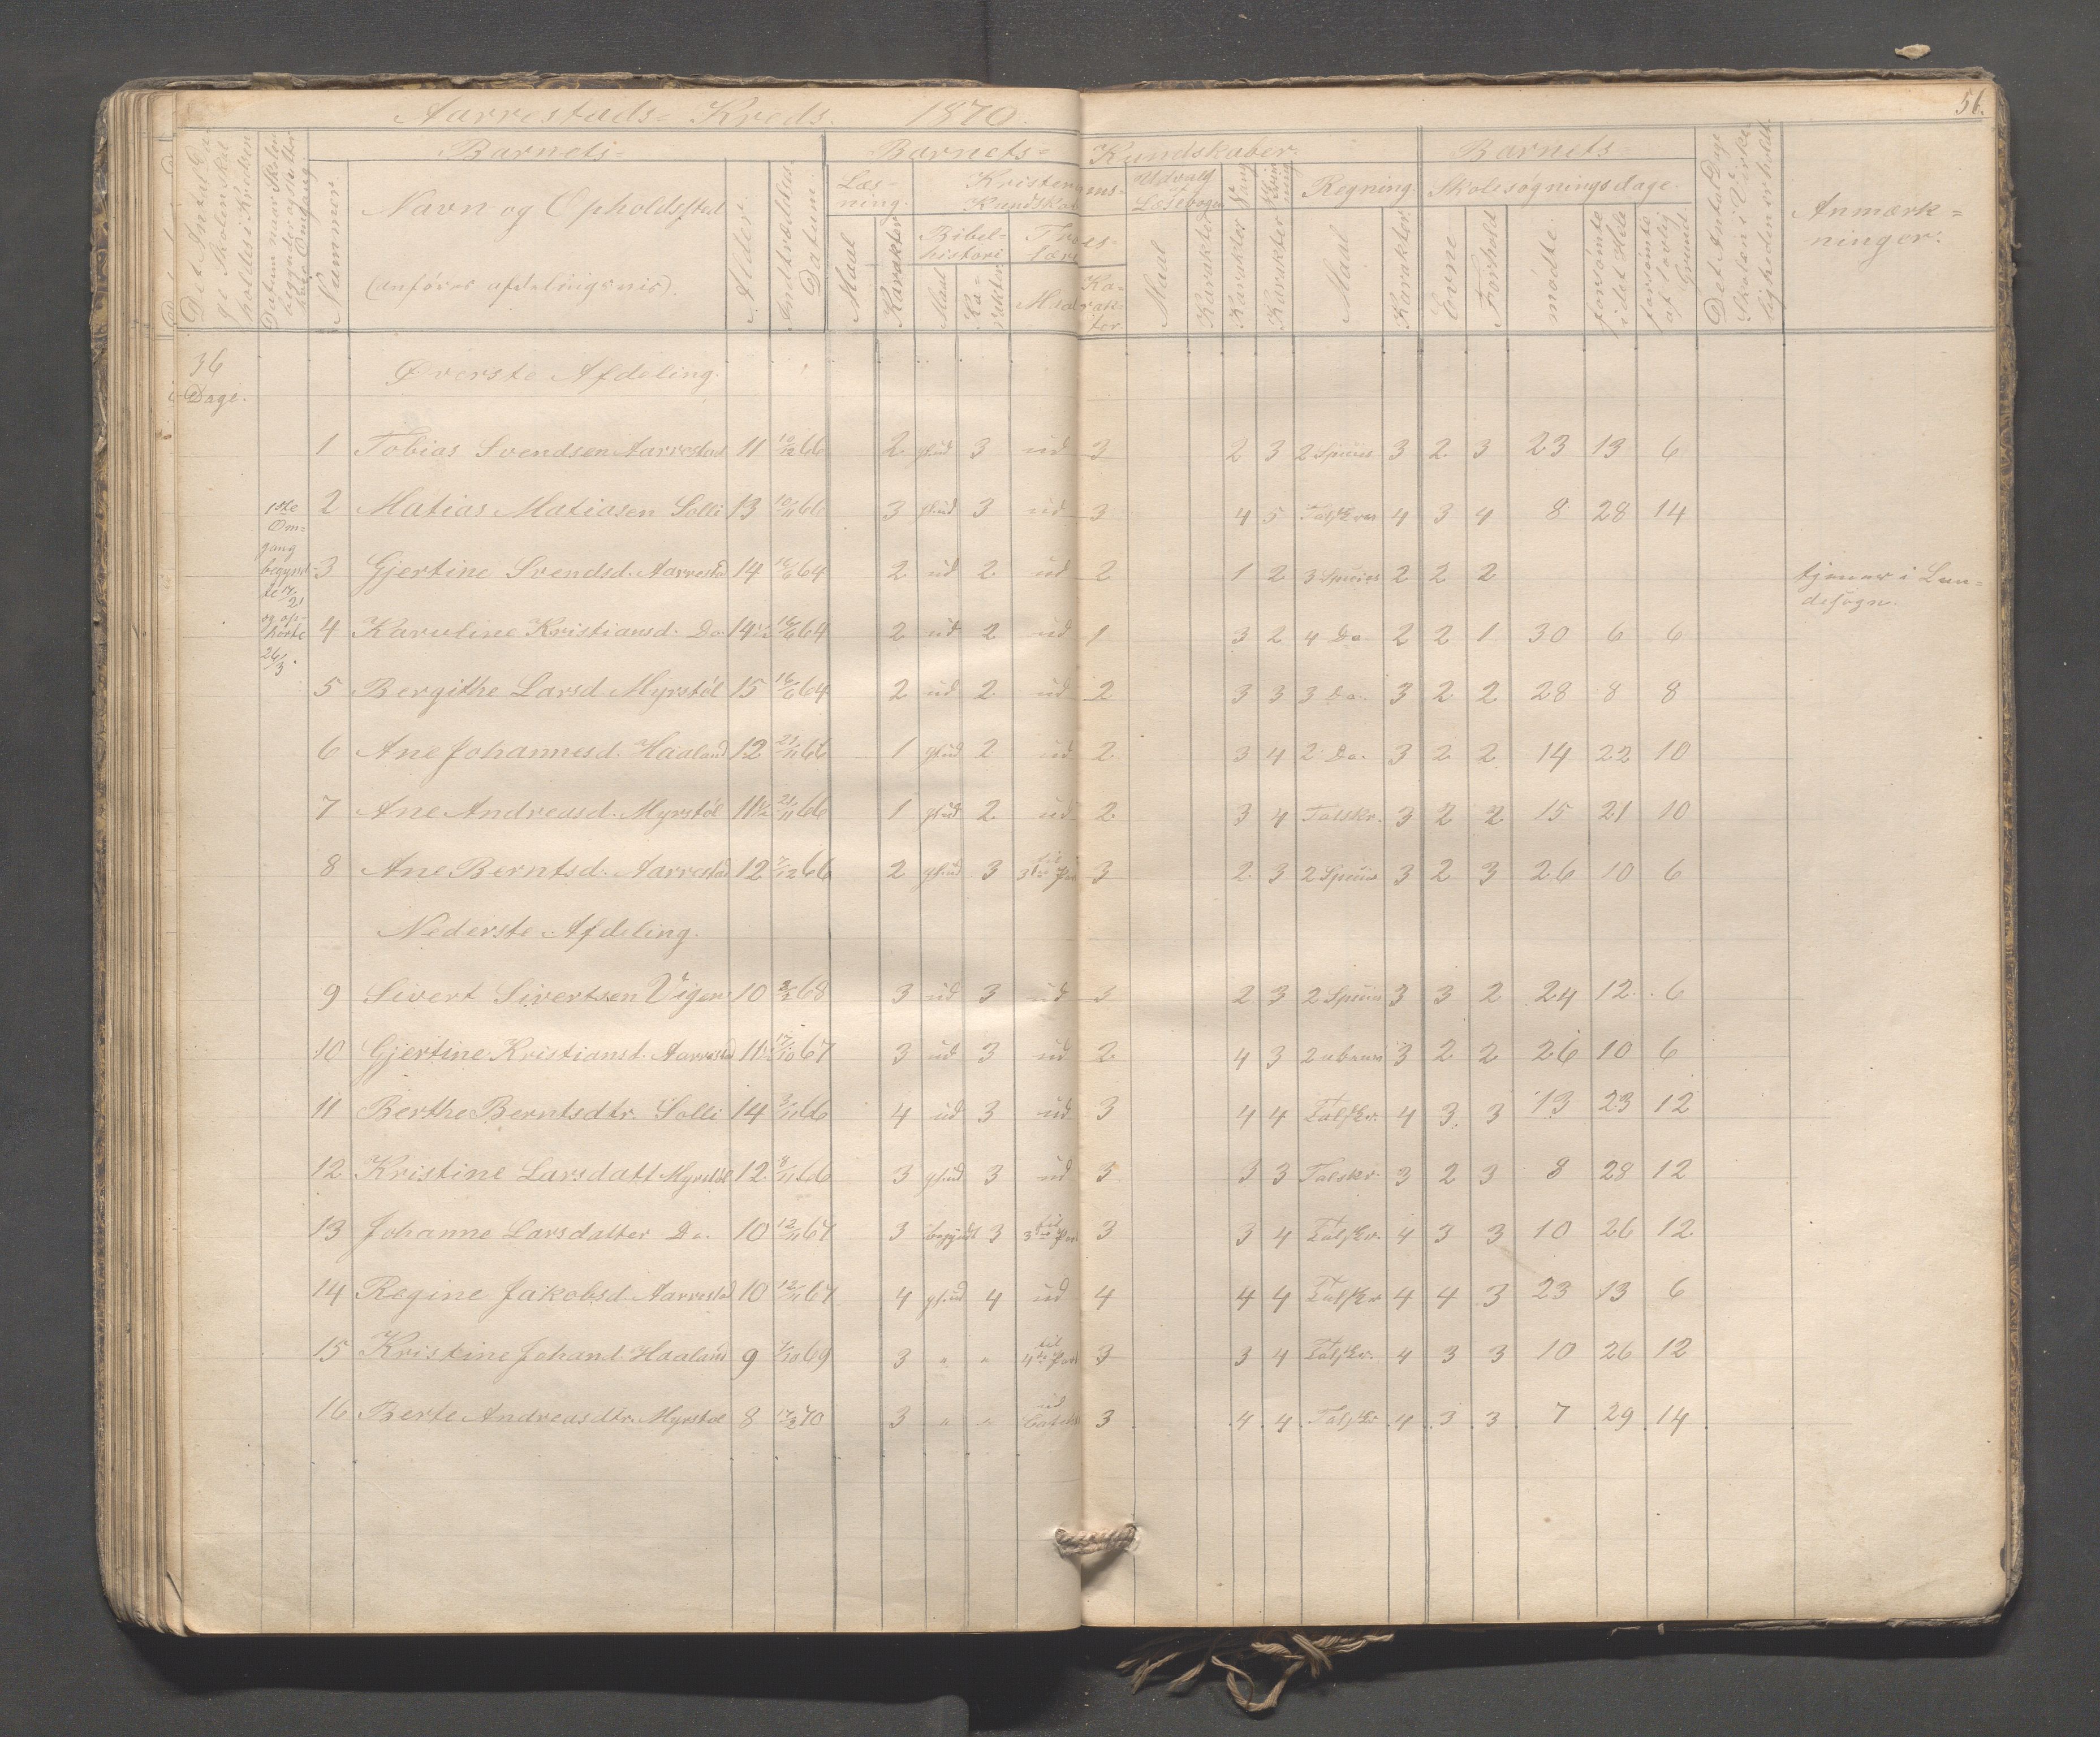 Aarrestads= Kreds. 1870.
56.
Det Antal Da-
ge Skolen skal
holdes i Kredsen
Datum naar Skolen
begynder og slutter
hver Omgang.
Barnets=
Nummer.
Navn og Opholdssted
(anföres afdelingsvis).
Alder.
Indtrædelses
Datum.
Barnets= Kundskaber.
Læs-
ning.
Maal
Karakter
Kristendoms-
Kundskab
Bibel-
historie
Maal
Ka-
rakter
Troes-
lære
Maal
Ka-
rak-
ter.
Udvalg
Læsebogen
Maal
Karakter
Sang
Karakter
Skriv-
ning
Karakter
Regning
Maal
Karakter
Barnets
Skolesøgningsdage.
Evne
Forhold
mødte
forsömte
i det Hele
forsömte
af lovlig
Grund.
Det Antal Dage
Skolen i Virke-
ligheden er holdt.
Anmærk=
ninger.
36
Dage.
Øverste Afdeling.
1ste
Om=
gang
begynd-
te 17/2
og op-
hörte
26/3.
1 Tobias Svendsen Aarrestad 11 10/12 66 2 gl.ud 3 ud 3 2 3 2 Species 3 2 3 23 13 6
2 Matias Matiasen Solli 13 10/11 66 3 gl.ud 3 ud 3 4 5 Talskr 4 3 4 8 28 14
3 Gjertine Svendsd. Aarrestad 14 16/6 64 2 ud 2 ud 2 1 2 3 Species 2 2 2 tjener i Lun=
desogn.
4 Karoline Kristiansd. Do 14½ 16/6 64 2 ud 2 ud 1 3 2 4 Do 2 2 1 30 6 6
5 Bergithe Larsd. Myrstöl 15 16/6 64 2 ud 2 ud 2 3 3 3 Do. 3 2 2 28 8 8
6 Ane Johannesd. Haaland 12 21/11 66 1 gl.ud 2 ud 2 3 4 2 Do. 3 2 2 14 22 10
7 Ane Andreasd. Myrstöl 11½ 21/11 66 1 gl.ud 2 ud 2 3 4 Talskr. 3 2 2 15 21 10
8 Ane Berntsd. Aarrestad 12 7/12 66 2 gl.ud 3 til 3die Part 3 2 3 2 Species 3 2 3 26 10 6
Nederste Afdeling.
9 Sivert Sivertsen Vigen 10 3/2 68 3 ud 3 ud 3 2 3 2 Species 3 3 2 24 12 6
10 Gjertine Kristiansd. Aarrestad 11½ 17/10 67 3 ud 3 ud 2 4 3 2 3 2 2 26 10 6
11 Berthe Berntsdtr. Solli 14 3/11 66 4 ud 3 ud 3 4 4 Talskr. 4 3 3 13 23 12
12 Kristine Larsdatt Myrstöl 12 8/11 66 3 gl.ud 3 ud 3 3 3 Talskr. 3 2 3 8 28 12
13 Johanne Larsdatter Do. 10 12/11 67 3 begyndt 3 til 3die Part 3 3 4 Talskr. 4 3 3 10 26 12
14 Regine Jakobsd. Aarrestad 10 12/11 67 4 gl.ud 4 ud 4 4 4 Talskr 4 4 3 23 13 6
15 Kristine Johand. Haaland 9 7/10 69 3 " " til 4de Part 3 3 4 Talskr. 4 3 3 10 26 12
16 Berte Andreasdtr. Myrstöl 8 17/2 70 3 " " ud 3 4 4 Talskr 4 3 3 7 29 14